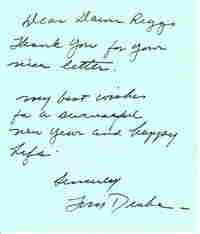 Dear Dawn Riggs
Thank you for your
nice letter.
my best wishes
for a successful
new year and happy
life.
Sincerely